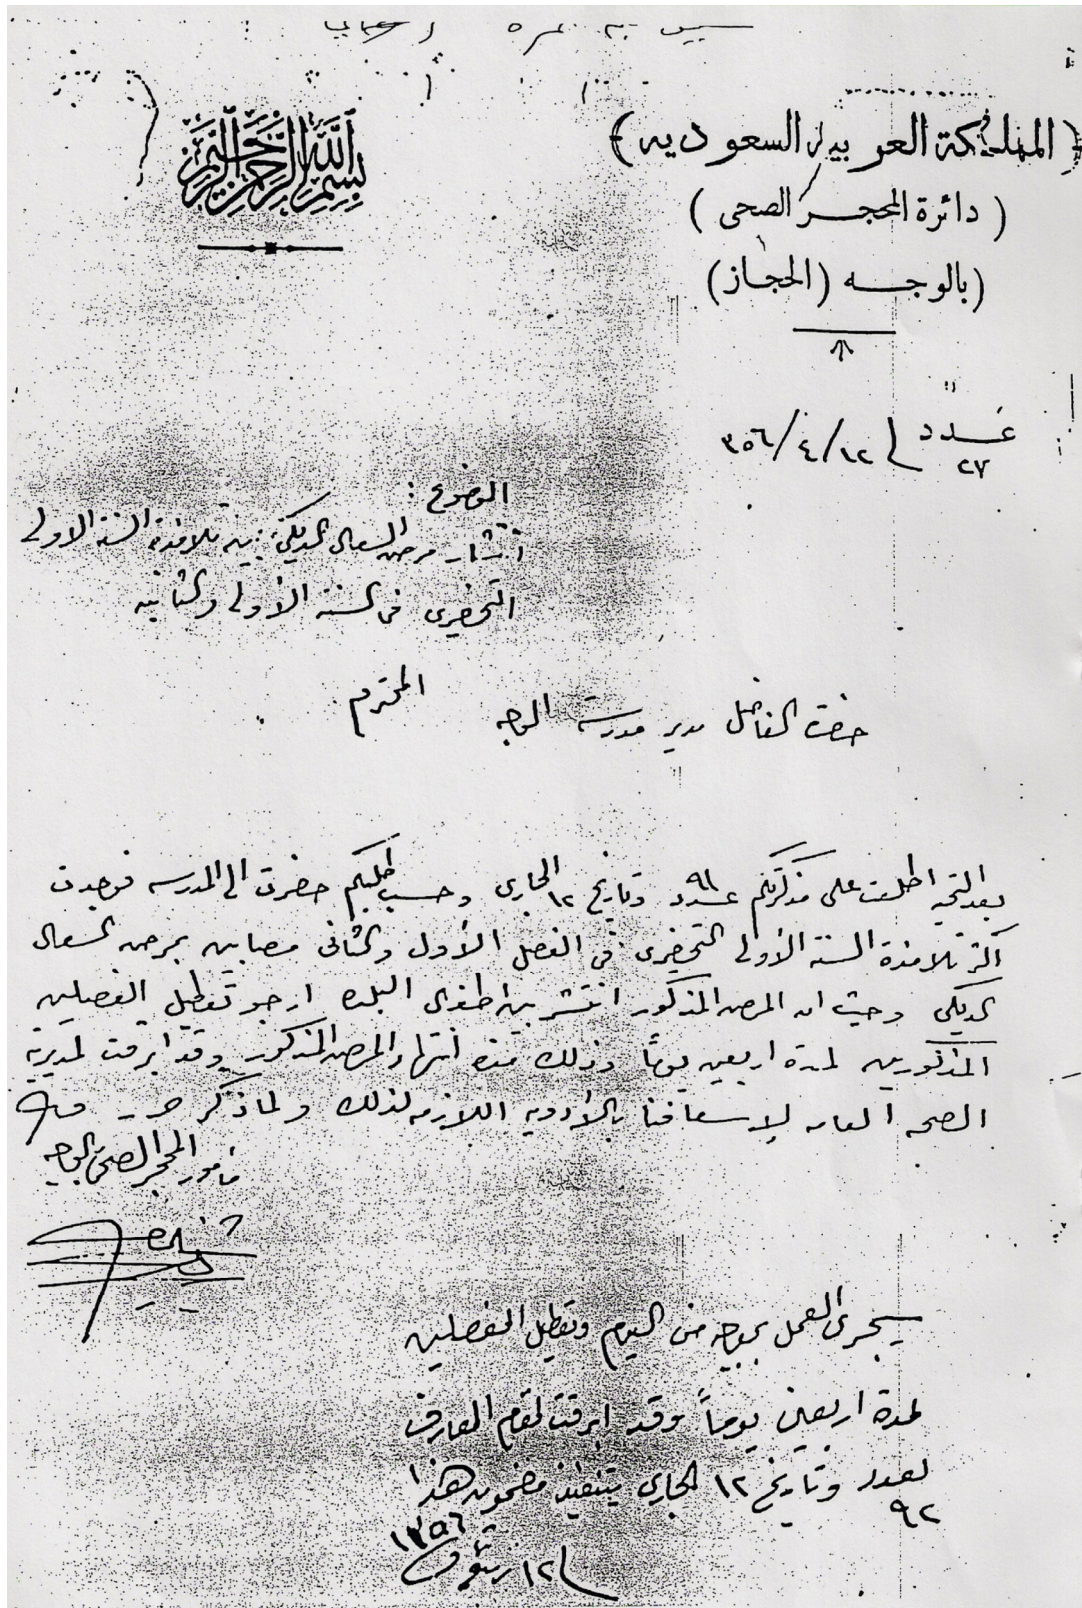 بسم الله الرحمن الرحيم
(المملكة العربية السعودية)
(دائرة المحجر الصحى)
(بالوجه (الحجاز)
عدد ٢٧ ١٢/٤/٣٥٦
الموضوع :
انتشار مرض السعال الديكى بين تلامذة السنة الاولى
التحضيرى فى السنة الأولى والثانيه
حضرت الفاضل مدير مدرسة الوجه المحترم
بعد التحيه اطلعت على مذكرتكم عدد ٩١ وتاريخ ١٢ الجارى وحسب طلبكم حضرت الى المدرسه فوجدت
اكثر تلامذة السنة الأولى التحضيرى فى الفصل الأول والثانى مصابين بمرض السعال
الديكى وحيث ان المرض المذكور انتشر بين اطفال البلده ارجو تعطيل الفصلين
المذكورين لمدة اربعين يوماً وذلك مدة انتهاء المرض المذكور وقد ابرقت لمديرية
الصحه العامه لإسعافنا بالأدويه اللازمه لذلك ولما ذكر حرر
مأمور المحجر الصحى بالوجه
سيجرى العمل بموجبه من اليوم وتعطيل الفصلين
لمدة اربعين يوماً وقد ابرقت لمقام المعارف
بعدد ٩٢ وتاريخ ١٢ الجارى بتنفيذ مضمون هذا
١٢ ١٣٥٦